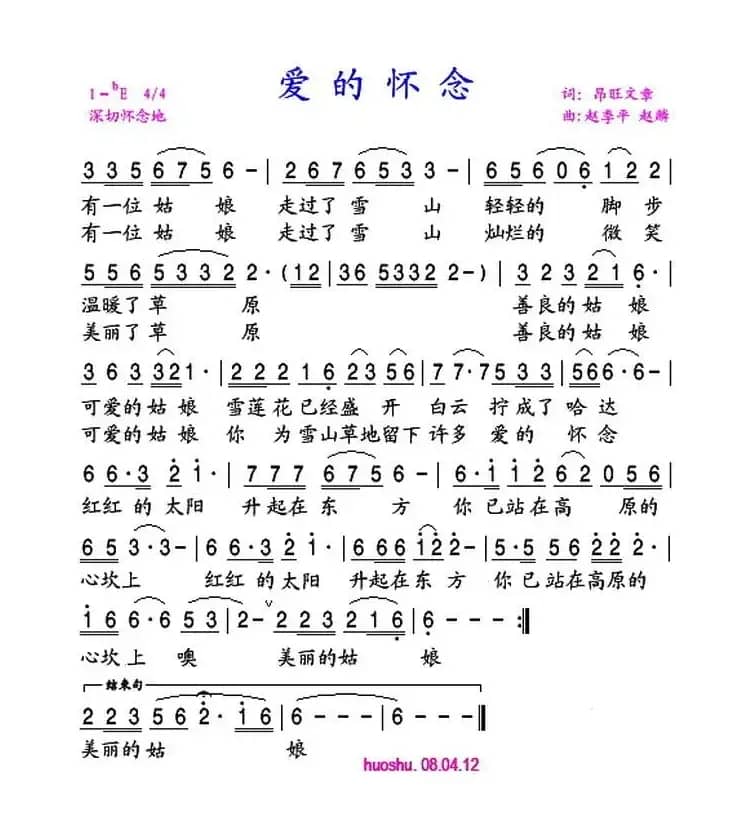 爱的怀念
1=ᵇE 4/4
词: 昂旺文章
深切怀念地
曲:赵季平 赵麟
3 3 5 6 7 5 6 - | 2 6 7 6 5 3 3 - | 6 5 6 0 6 1 2 2 |
有一位 姑 娘 走过了 雪 山 轻轻的 脚 步
有一位 姑 娘 走过了 雪 山 灿烂的 微 笑
5 5 6 5 3 3 2 2 · ( 1 2 | 3 6 5 3 3 2 2 - ) | 3 2 3 2 1 6 · |
温暖了 草 原 善良的 姑 娘
美丽了 草 原 善良的 姑 娘
3 6 3 3 2 1 · | 2 2 2 1 6 2 3 5 6 | 7 7 · 7 5 3 3 | 5 6 6 6 · 6 - |
可爱的 姑 娘 雪莲花 已经盛 开 白云 拧成了 哈 达
可爱的 姑 娘 你 为雪山草地留下 许多 爱的 怀 念
6 6 · 3 2 1 · | 7 7 7 6 7 5 6 - | 6 · 1 1 2 6 2 0 5 6 |
红红 的 太阳 升起在 东 方 你 已站在高 原的
6 5 3 · 3 - | 6 6 · 3 2 1 · | 6 6 6 1 2 2 - | 5 · 5 5 6 2 2 2 · |
心坎上 红红 的 太阳 升起在 东 方 你 已 站在高原的
1 6 6 · 6 5 3 | 2 - ∨ 2 2 3 2 1 6 | 6 - - - :‖
心坎 上 噢 美丽的 姑 娘
结束句
2 2 3 5 6 2 · 1 6 | 6 - - - | 6 - - - ‖
美丽的 姑 娘
huoshu. 08.04.12